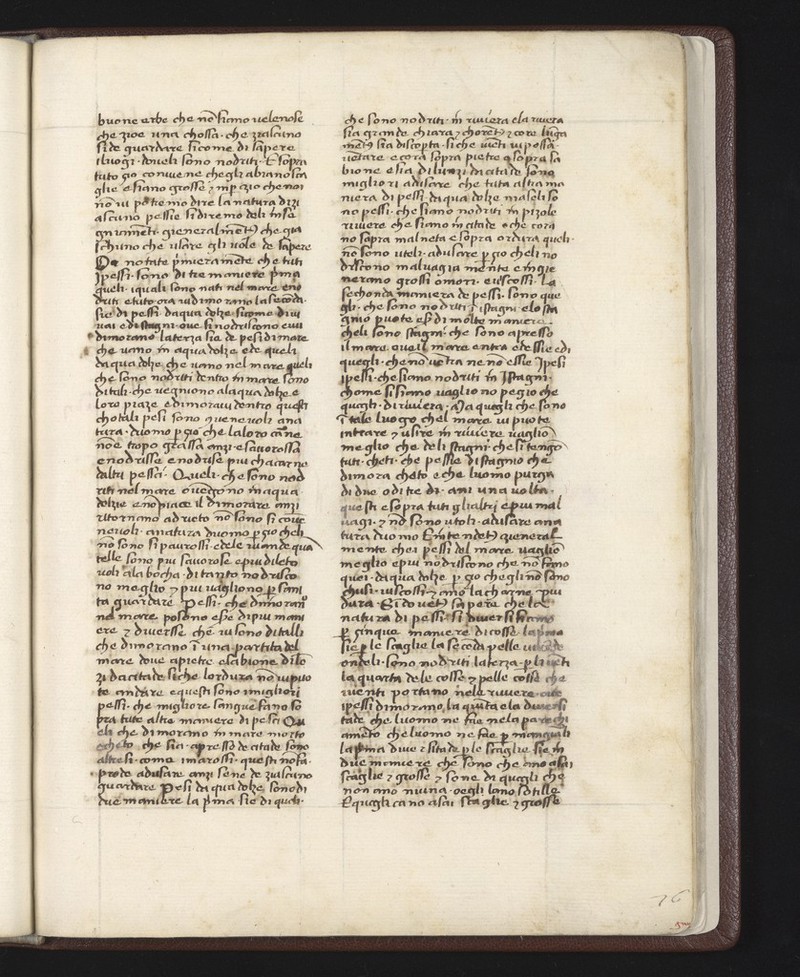 buone erbe che nõ siano uelenose
che zioe una chossa · che ziascuno
si de guardare si come di sapere
iluogi · doueli sono nodriti · E sopra
tuto zio conuene che gli abiano sca
glie e siano grosse ⁊ inp̱ czio che noi
no ui potremo dire la natura di zi
ascuno pessie si diremo deli inse
gnamẽti · gieneralmẽte che gia
schuno che usare gli uole de sapere
notate p̃mieramẽte che tuti
Ipessi · sono di tre maniere p̃ma
queli · iquali sono nati nel mare e no
driti e tuto ora ui dimorano la secõda
sie di pessi · daqua dolze · sicome di ui
uai e di stagni · oue si nodriscono e ui
dimorano laterza sie de pesi di mare
che uano in aqua dolze e de queli
daqua dolze che uano nel mare queli
che sono nodriti dentro in mare sono
di tali · che uegnono alaqua dolze e
loro piaze e dimoraui dentro questi
chotali pesi sono conueneuoli ana
tura · duomo p̱ zio che laloro carne
nõe tropo grassa anzi · e sauorossa
e nodrisse e nodrise piu cha carne
daltri pessi · Queli · che sono nod
riti nel mare o uegono in aqua
dolzie e nõ piace il dimorare anzi
ritornano adrieto nõ sono si coue
neuoli · anatura duomo p̱ zio cheli
no sono si paurossi · e dele uiuande qua
telle sono piu sauorose e piu dileto
uoli ala bocha · di tanto nodrisco
no meglio ⁊ piu uagliono p̱ sani
ta guardare Pessi · che dimorano
nel mare posono esse di piu mani
ere ⁊ diuersse che ui sono di talli
che dimorano ĩ una partita del
mare doue apietre e sabione di lõ
zi da citade si che lordura nõ ui puo
te andare e questi sono imigliori
pessi · che migliore sangue fano so
pra tute altre maniere di pesci Qu
eli che dimorano in mare morto
e cheto che sia · apresso de citade sono
altresi · come imarossi · questi no fa
prode adusare anzi sene de ziascuno
guardare Pesi daqua dolze sono di
due maniere la p̃ma sie di queli ·
che sono nodriti · in riuiera e la riuera
sia grande chiara ⁊ chorẽte ⁊ core lũga
mẽte sia discopta · si che uẽti ui possa ·
uẽtare e cora sopra pietre o sopra sa
bione e sia di lunzi da citade sono
migliori adusare che tuta altra mo
niera di pessi daqua dolze ma soli so
no pessi · che siano nodriti in pizole
riuiere che siano in citade o che cora
no sopra malneta e sopra ordura queli ·
nõ sono utoli · adusare p̱ zio cheli no
driscono maluagia mente e ingie
nerano grossi omori · e uiscossi · La
sechonda maniera de pessi · sono que
gli · che sono nodriti ĩ istagni e lo sta
gnio puote essere di molte maniere ·
cheli sono stagni · che sono apresso
il mare oue il mare entra et e sse e di
quegli · che nõ uẽtra ne nõ essie Ipesi
ipessi · che siano nodriti in Istagni ·
chome si siano uaglino pegio che
quegli · di riuiera · Ma quegli che sono
ĩ tale luogo chel mare ui puote
intrare ⁊ usire in riuiere uagliõ
meglio che deli stagni · che si tengõ
tuti · cheti · che pessie di stagnio che
dimora cheto e che luomo purga
di due o di tre di · ani una uolta ·
questi e sopra tuti gli altri e piu mal
uagi · ⁊ nõ sono utoli · adusare ana
tura duomo E intendete general
mente che i pessi del mare uagliõ
meglio e piu nodriscono che nõ fano
quei · daqua dolze p̱ zio che gli nõ sono
chusi · uiscossi · ⁊ ano la charne · piu
dura · E si douete sapere che la
natura di pessi · si diuersificano
p̱ cinque maniere di cosse la p̃ma
sie p̱ le scaglie la secõda pelle
ondeli · sono nodriti la terza · p̱ li uẽti
la quarta dele cosse ⁊ pelle cosse che
iuenti portano nele riuiere oue
ipessi dimorano la quinta e la diuersi
tade che luomo ne fae nela parechi
amẽto che luomo ne fae p̱ mangiali
la p̃ma diue ⁊ sitade p̱ le scaglie sie in
due maniere che sono che ano asai
scaglie ⁊ grosse ⁊ sone di quegli che
non ano niuna · o e gli lano sotille
E quegli ca no asai scaglie ⁊ grosse
76